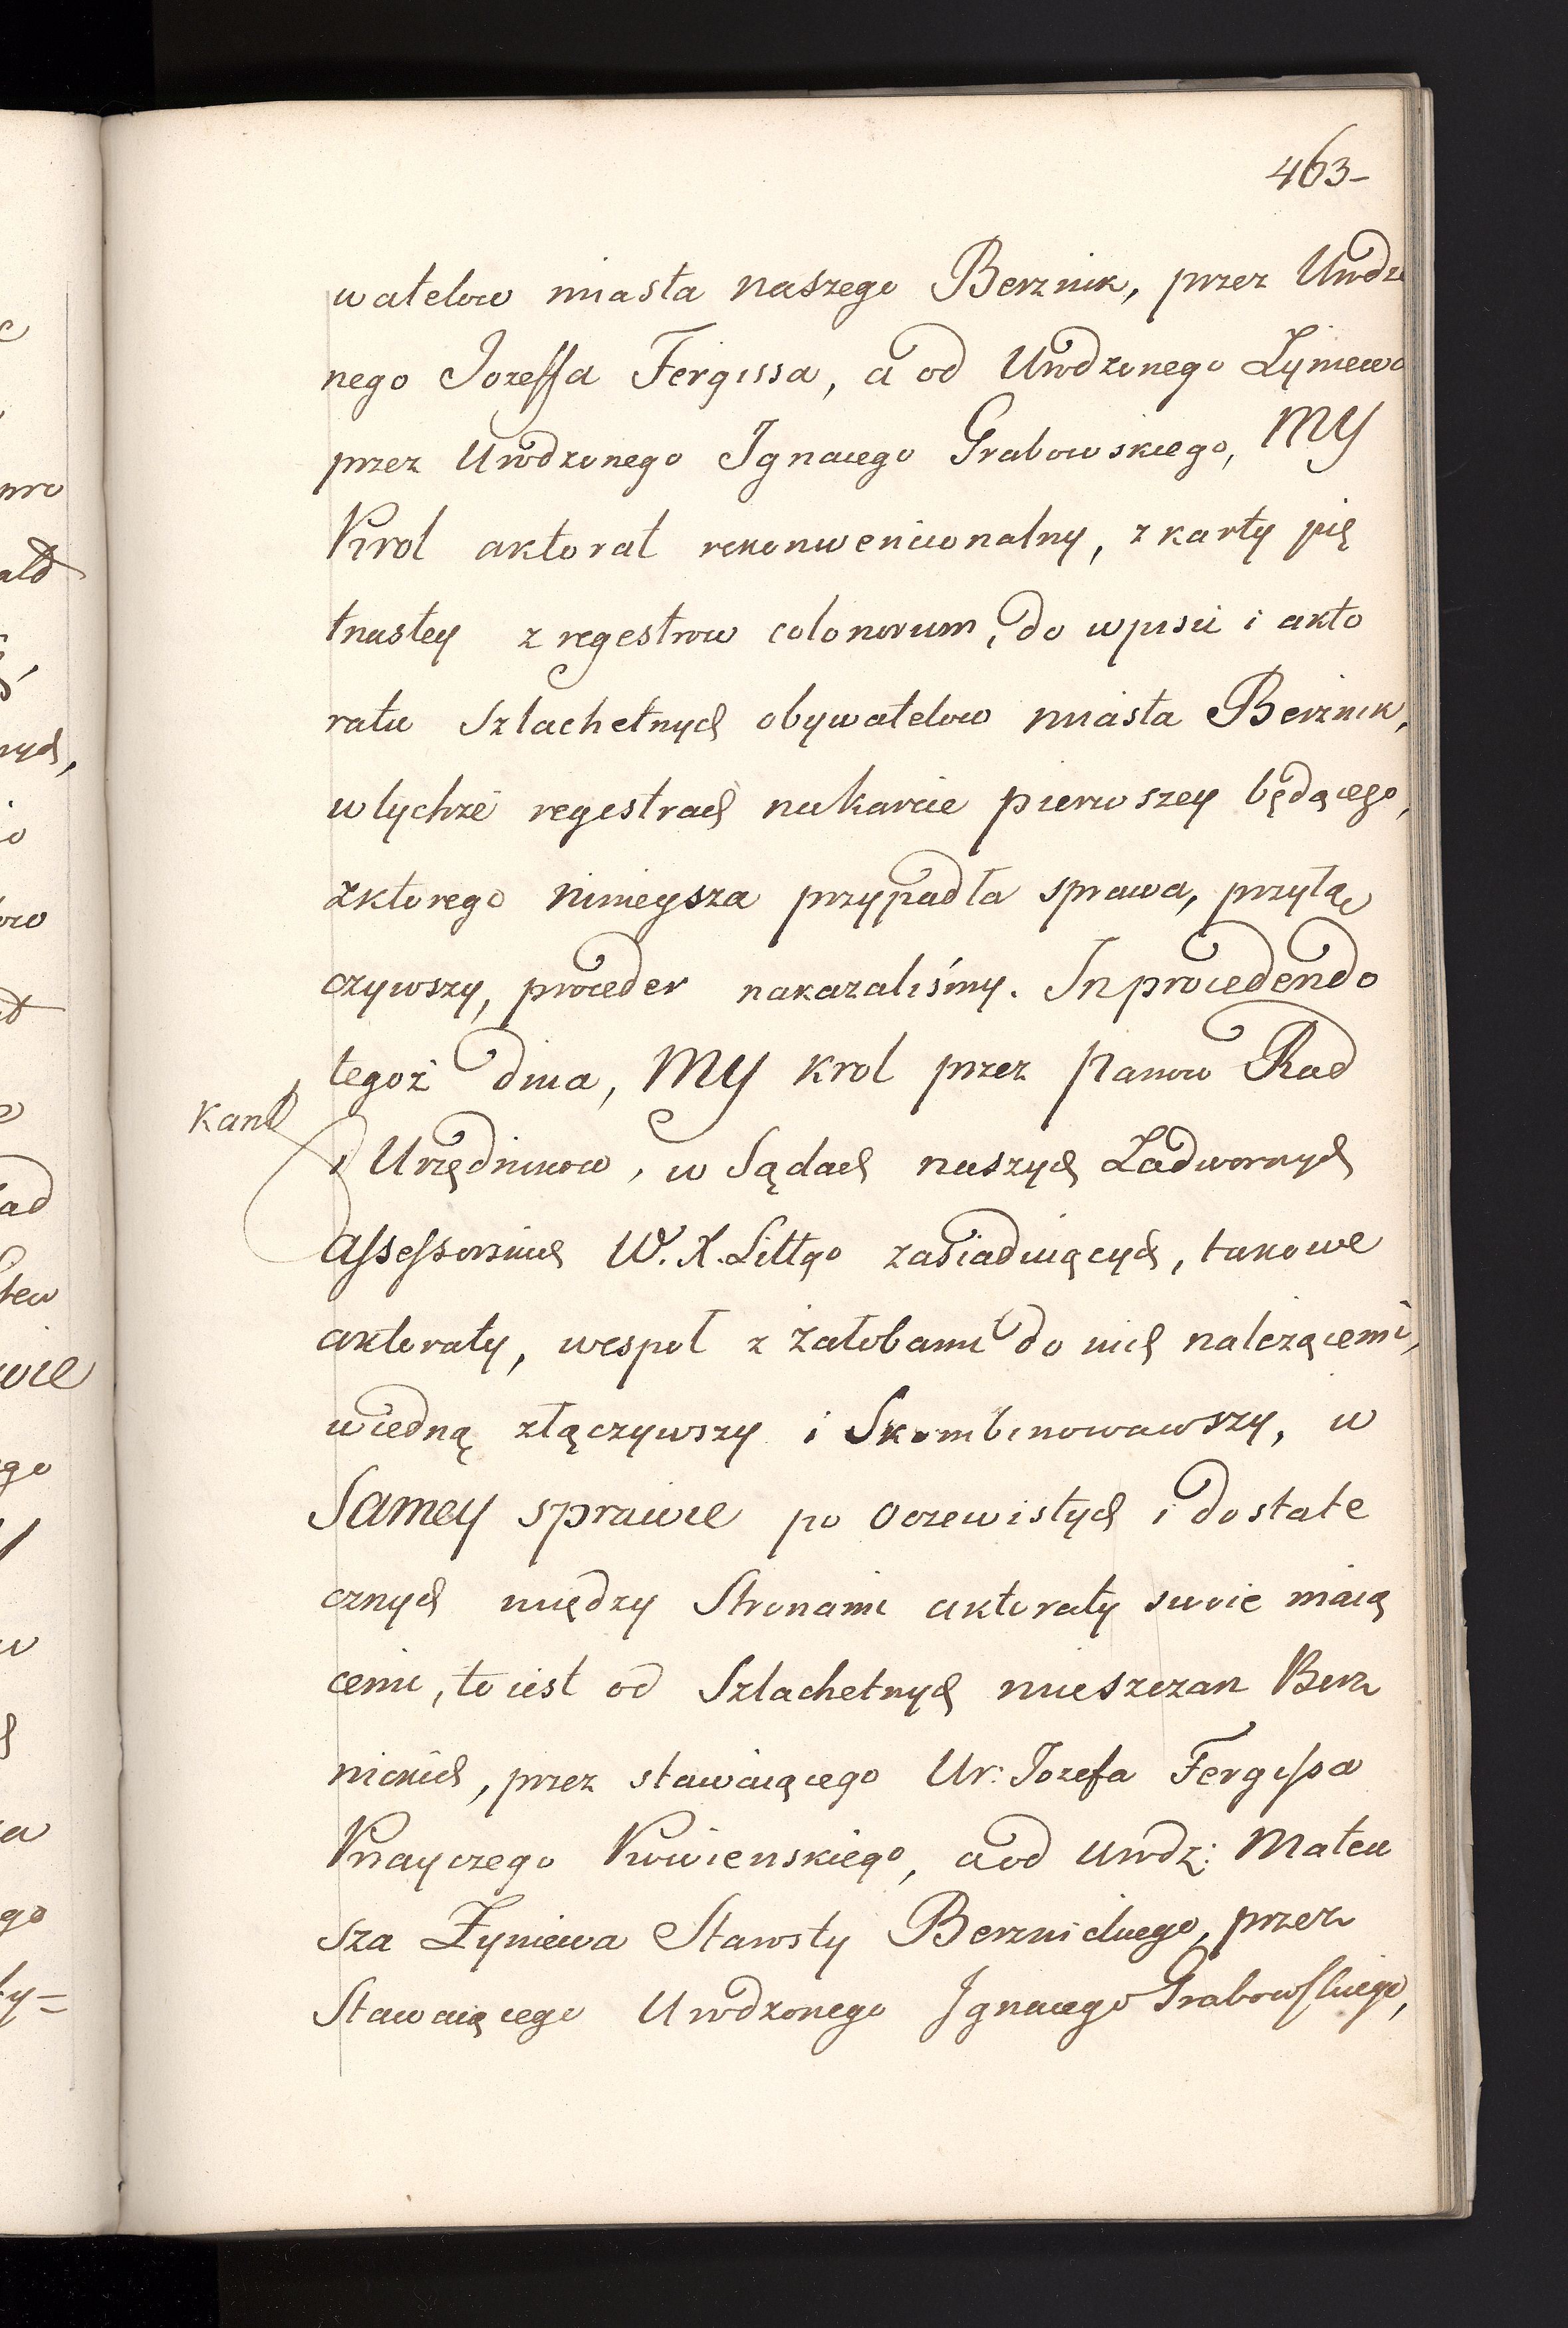 463-
watelow miasta naszego Berznik, przez Urodzo
nego Jozeffa Fergissa, a od Urodzonego Zyniewa
przez Urodzonego Ignacego Grabowskiego, MY
Krol aktorat rekonwencionalny, z karty pię
tnastey z regestrow colonorum, do wpisu i akto
ratu Szlachetnych obywatelow miasta Berznik,
wtychże regestrach nakarcie pierwszey będącego,
zktorego ninieysza przypadła sprawa, przyłą
czywszy, proceder nakazaliśmy. Inprocedendo
tegoż dnia, MY Krol przez Panow Rad
Kant
i Urzędnikow, w Sądach naszych Zadwornych
assessorskich W. X. Littgo zasiadaiących, takowe
aktoraty, wespoł z żałobami do nich należącemi,
wiedną złączywszy i Skombinowawszy, w
Samey sprawie po oczewistych i dostate
cznych między Stronami aktoraty swoie maią
cemi, to iest od Szlachetnych mieszczan Berz
nickich, przez stawaiącego Ur: Jozefa Fergissa
Krayczego Kowienskiego, a od Urodz: Mateu
sza Zyniewa Starosty Berznickiego, przez
Stawaiącego Urodzonego Ignacego Grabowskiego,